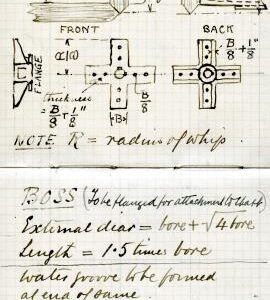 FRONT
BACK
FLANGE
thickness
= B/8 + 1/8"
B/8
B/8 + 1/8"
←B→
NOTE. R = radius of whip.
BOSS (To be flanged for attachment to shaft)
External diar = bore + √4 bore
Length = 1·5 times bore
Water groove to be formed
at end of same